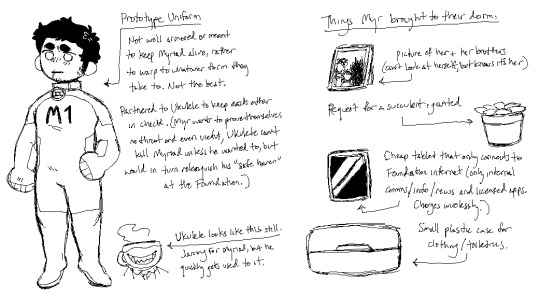 Prototype Uniform
Not well armored or meant
to keep Myriad alive, rather
to warp to whatever form they
take to. Not the best.
Partnered to Ukulele to keep each other
in check. (Myr wants to prove themselves
no threat and even useful, Ukulele can't
kill Myriad unless he wanted to, but
would in turn relinquish his "safe haven"
at the Foundation.)
M1
Ukulele looks like this still.
Jarring for Myriad, but he
quickly gets used to it.
Things Myr brought to their dorm:
Picture of her + her brothers
(can't look at herself, but knows it's her)
Request for a succulent, granted
Cheap tablet that only connects to
Foundation internet (only internal
comms/info/news and licensed apps.
Charges wirelessly.)
Small plastic case for
clothing/toiletries.